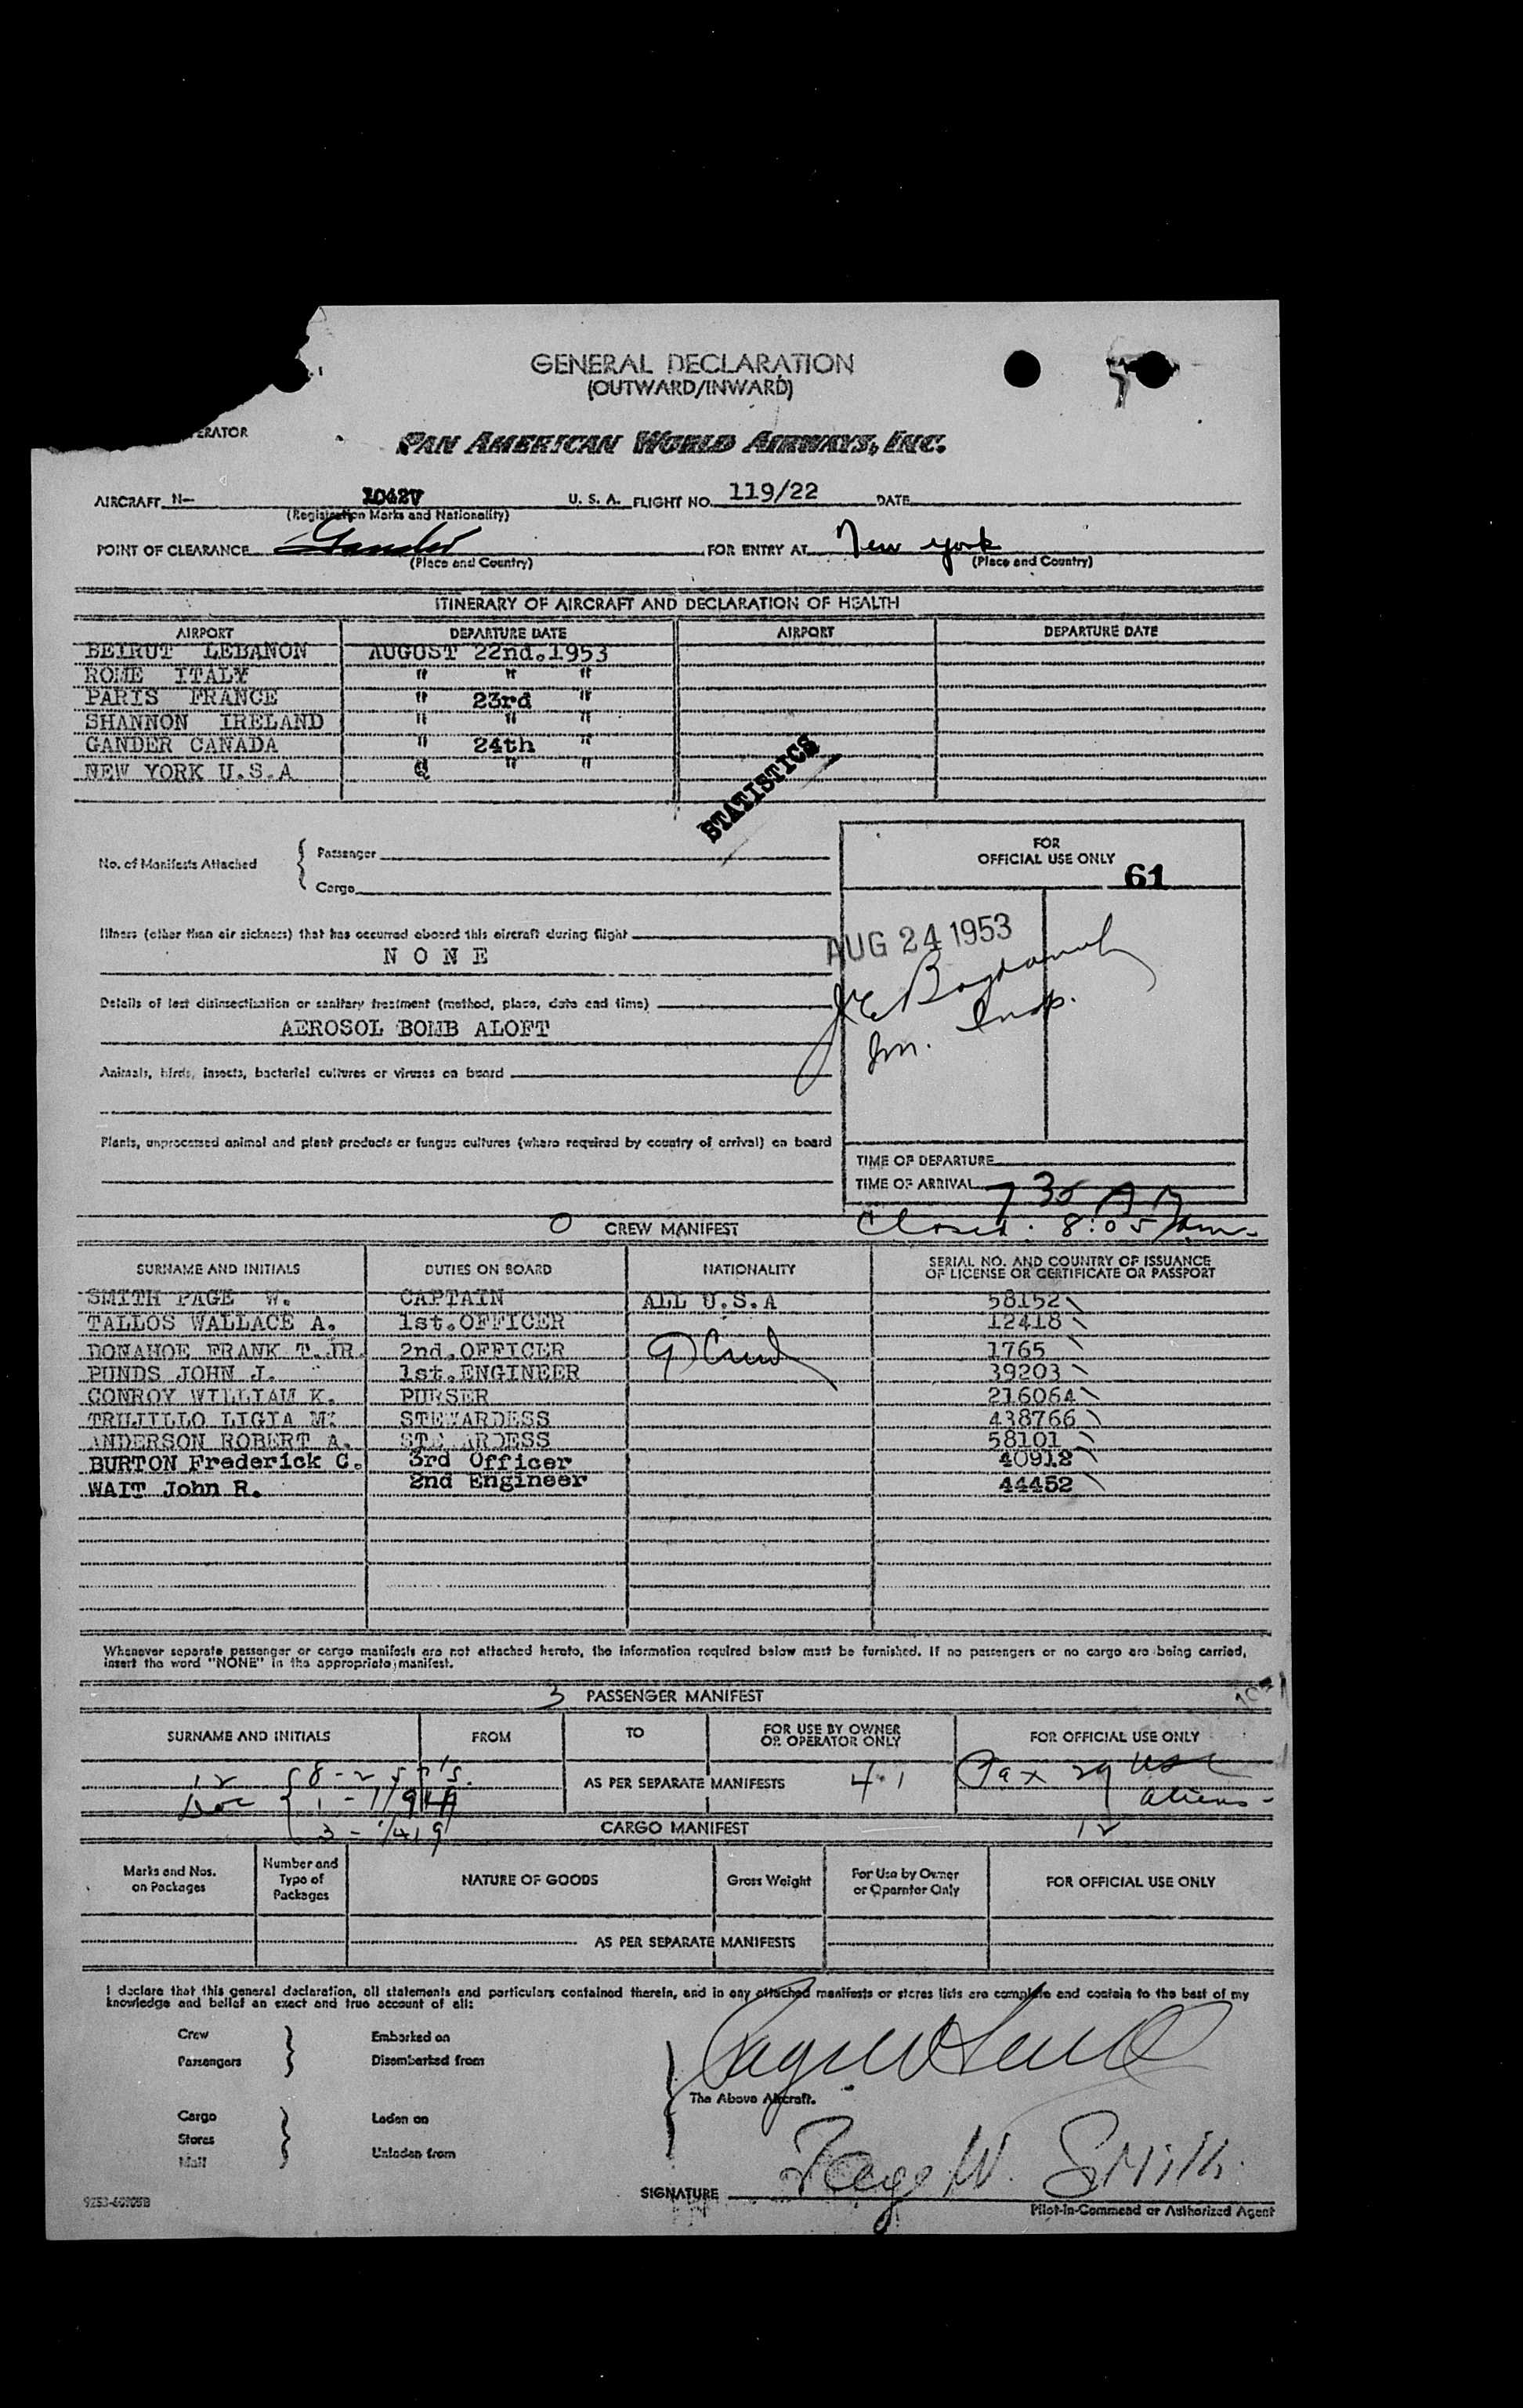 GENERAL DECLARATION
(OUTWARD/INWARD)
ERATOR
PAN AMERICAN WORLD AIRWAYS, INC.
AIRCRAFT N- 1042V U. S. A. FLIGHT NO. 119/22 DATE
(Registration Marks and Nationality)
POINT OF CLEARANCE Gander FOR ENTRY AT New York
(Place and Country) (Place and Country)
ITINERARY OF AIRCRAFT AND DECLARATION OF HEALTH
AIRPORT DEPARTURE DATE AIRPORT DEPARTURE DATE
BEIRUT LEBANON AUGUST 22nd.1953
ROME ITALY " " "
PARIS FRANCE " 23rd "
SHANNON IRELAND " " "
GANDER CANADA " 24th "
NEW YORK U.S.A " "
STATISTICS
No. of Manifests Attached { Passenger
Cargo
FOR
OFFICIAL USE ONLY
61
Illness (other than air sickness) that has occurred aboard this aircraft during flight
N O N E
AUG 24 1953
Details of last disinsectization or sanitary treatment (method, place, date and time)
AEROSOL BOMB ALOFT
Im. Insp.
Animals, birds, insects, bacterial cultures or viruses on board
Plants, unprocessed animal and plant products or fungus cultures (where required by country of arrival) on board
TIME OF DEPARTURE
TIME OF ARRIVAL 7 35 AM
0 CREW MANIFEST Closed: 8:05 Am-
SURNAME AND INITIALS DUTIES ON BOARD NATIONALITY SERIAL NO. AND COUNTRY OF ISSUANCE
OF LICENSE OR CERTIFICATE OR PASSPORT
SMITH PAGE W. CAPTAIN ALL U.S.A 58152
TALLOS WALLACE A. 1st.OFFICER 12418
DONAHOE FRANK T.JR. 2nd.OFFICER 9 Crew 1765
PUNDS JOHN J. 1st.ENGINEER 39203
CONROY WILLIAM K. PURSER 216064
TRUJILLO LIGIA M. STEWARDESS 438766
ANDERSON ROBERT A. STEWARDESS 58101
BURTON Frederick C. 3rd Officer 40912
WAIT John R. 2nd Engineer 44452
Whenever separate passenger or cargo manifests are not attached hereto, the information required below must be furnished. If no passengers or no cargo are being carried,
insert the word "NONE" in the appropriate manifest.
3 PASSENGER MANIFEST
SURNAME AND INITIALS FROM TO FOR USE BY OWNER
OR OPERATOR ONLY FOR OFFICIAL USE ONLY
12 8 - 2
AS PER SEPARATE MANIFESTS 41 Pax 29 USC
Aliens-
CARGO MANIFEST 12
Marks and Nos.
on Packages Number and
Type of
Packages NATURE OF GOODS Gross Weight For Use by Owner
or Operator Only FOR OFFICIAL USE ONLY
AS PER SEPARATE MANIFESTS
I declare that this general declaration, all statements and particulars contained therein, and in any attached manifests or stores lists are complete and contain to the best of my
knowledge and belief an exact and true account of all:
Crew
Passengers } Embarked on
Disembarked from
The Above Aircraft.
Cargo
Stores
Mail } Laden on
Unladen from
Page W. Smith
SIGNATURE
Pilot-in-Command or Authorized Agent